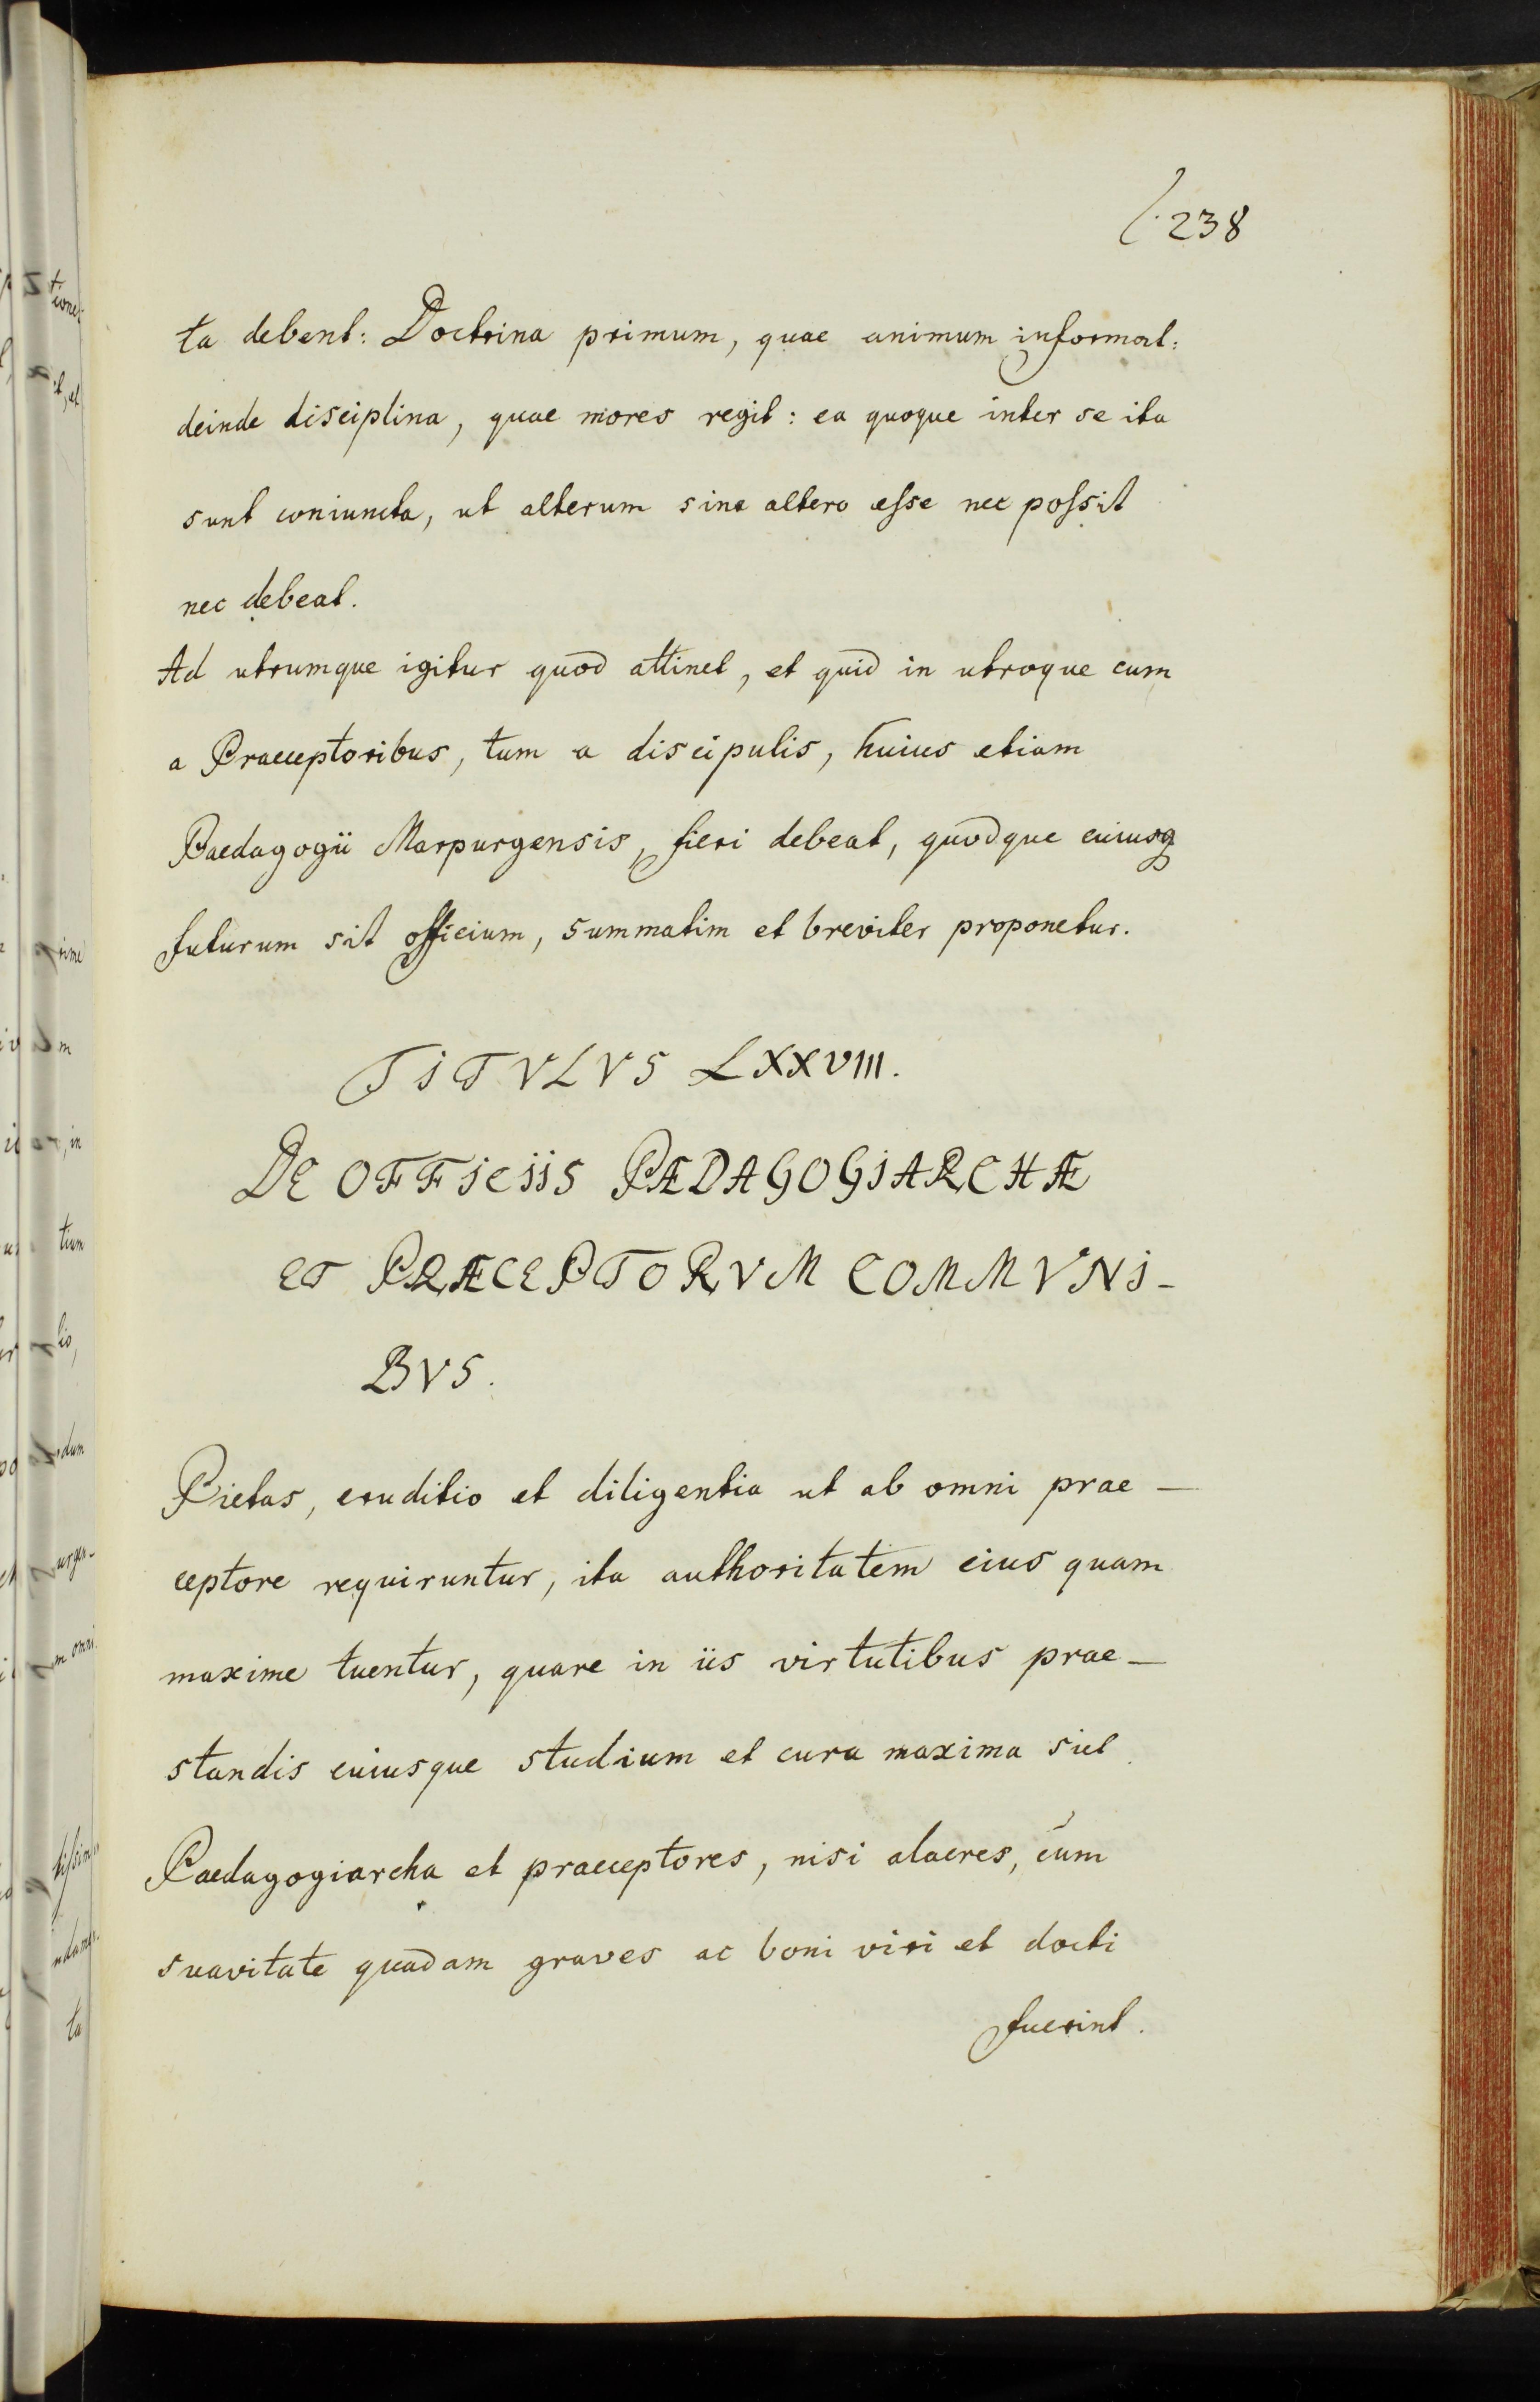 238
ta debent: Doctrina primum, quae animum informat:
deinde disciplina, quae mores regit: ea quoque inter se ita
sunt coniuncta, ut alterum sine altero eſse nec poſsit
nec debeat.
Ad utrumque igitur quod attinet, et quid in utroque cum
a Praeceptoribus, tum a discipulis, huius etiam
Paedagogii Marpurgensis, fieri debeat, quodque cuiusq
futurum sit officium, summatim et breviter proponetur.
TITVLVS LXXVIII.
DE OFFICIIS PÆDAGOGIARCHÆ
ET PRÆCEPTORVM COMMVNI-
BVS.
Pietas, eruditio et diligentia ut ab omni prae-
ceptore requiruntur, ita authoritatem eius quam
maxime tuentur, quare in iis virtutibus prae-
standis cuiusque studium et cura maxima siet
Paedagogiarcha et praeceptores, nisi alacres, cum
suavitate quadam graves ac boni viri et docti
fuerint.